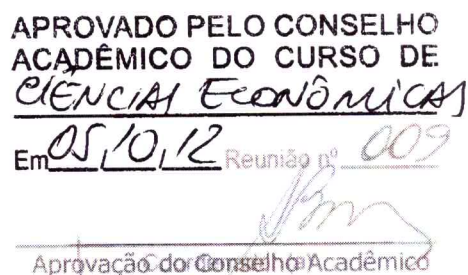 APROVADO PELO CONSELHO
ACADÊMICO DO CURSO DE
CIÊNCIAS ECONÔMICAS
Em 05/10/12 Reunião nº 009
Aprovação do Conselho Acadêmico